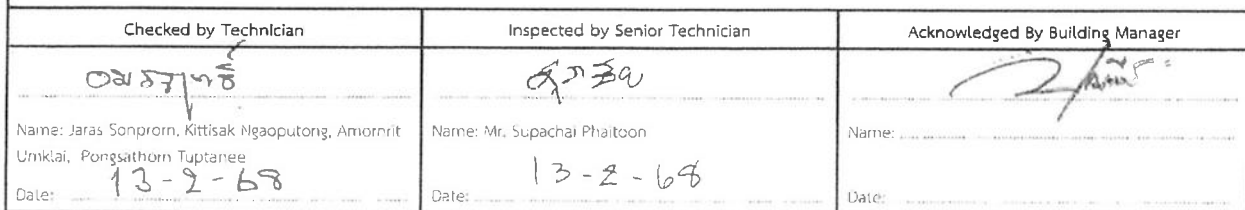 Checked by Technician
Inspected by Senior Technician
Acknowledged By Building Manager
อมรฤทธิ์
ศุภชัย
Name: Jaras Sonprorn, Kittisak Ngaoputong, Amornrit
Umklai, Pongsathorn Tuptanee
Date: 13-2-68
Name: Mr. Supachai Phaitoon
Date: 13-2-68
Name:
Date: